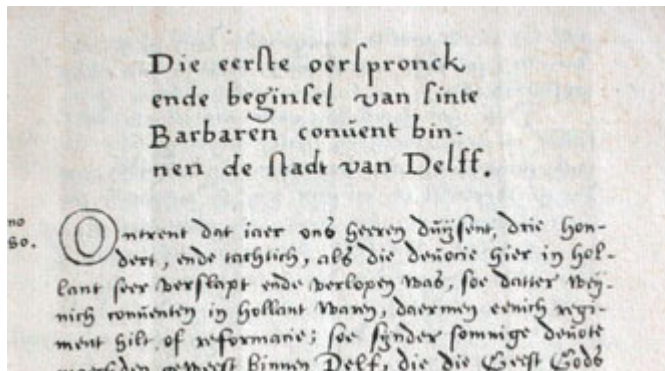 Die eerste oerspronck
ende beginsel van sinte
Barbaren conuent bin-
nen de stadt van Delff.
no
80.
Ontrent dat iaer ons heeren duijsent, drie hon-
dert, ende tachtich, als die deuocie hier in hol-
lant seer verslapt ende verlopen was, soe datter wey-
nich conuenten in hollant waren, daermen eenich regi-
ment hilt of reformacie; soe synder somnige deuote
maechden geweest binnen Delf, die die Geest Gods